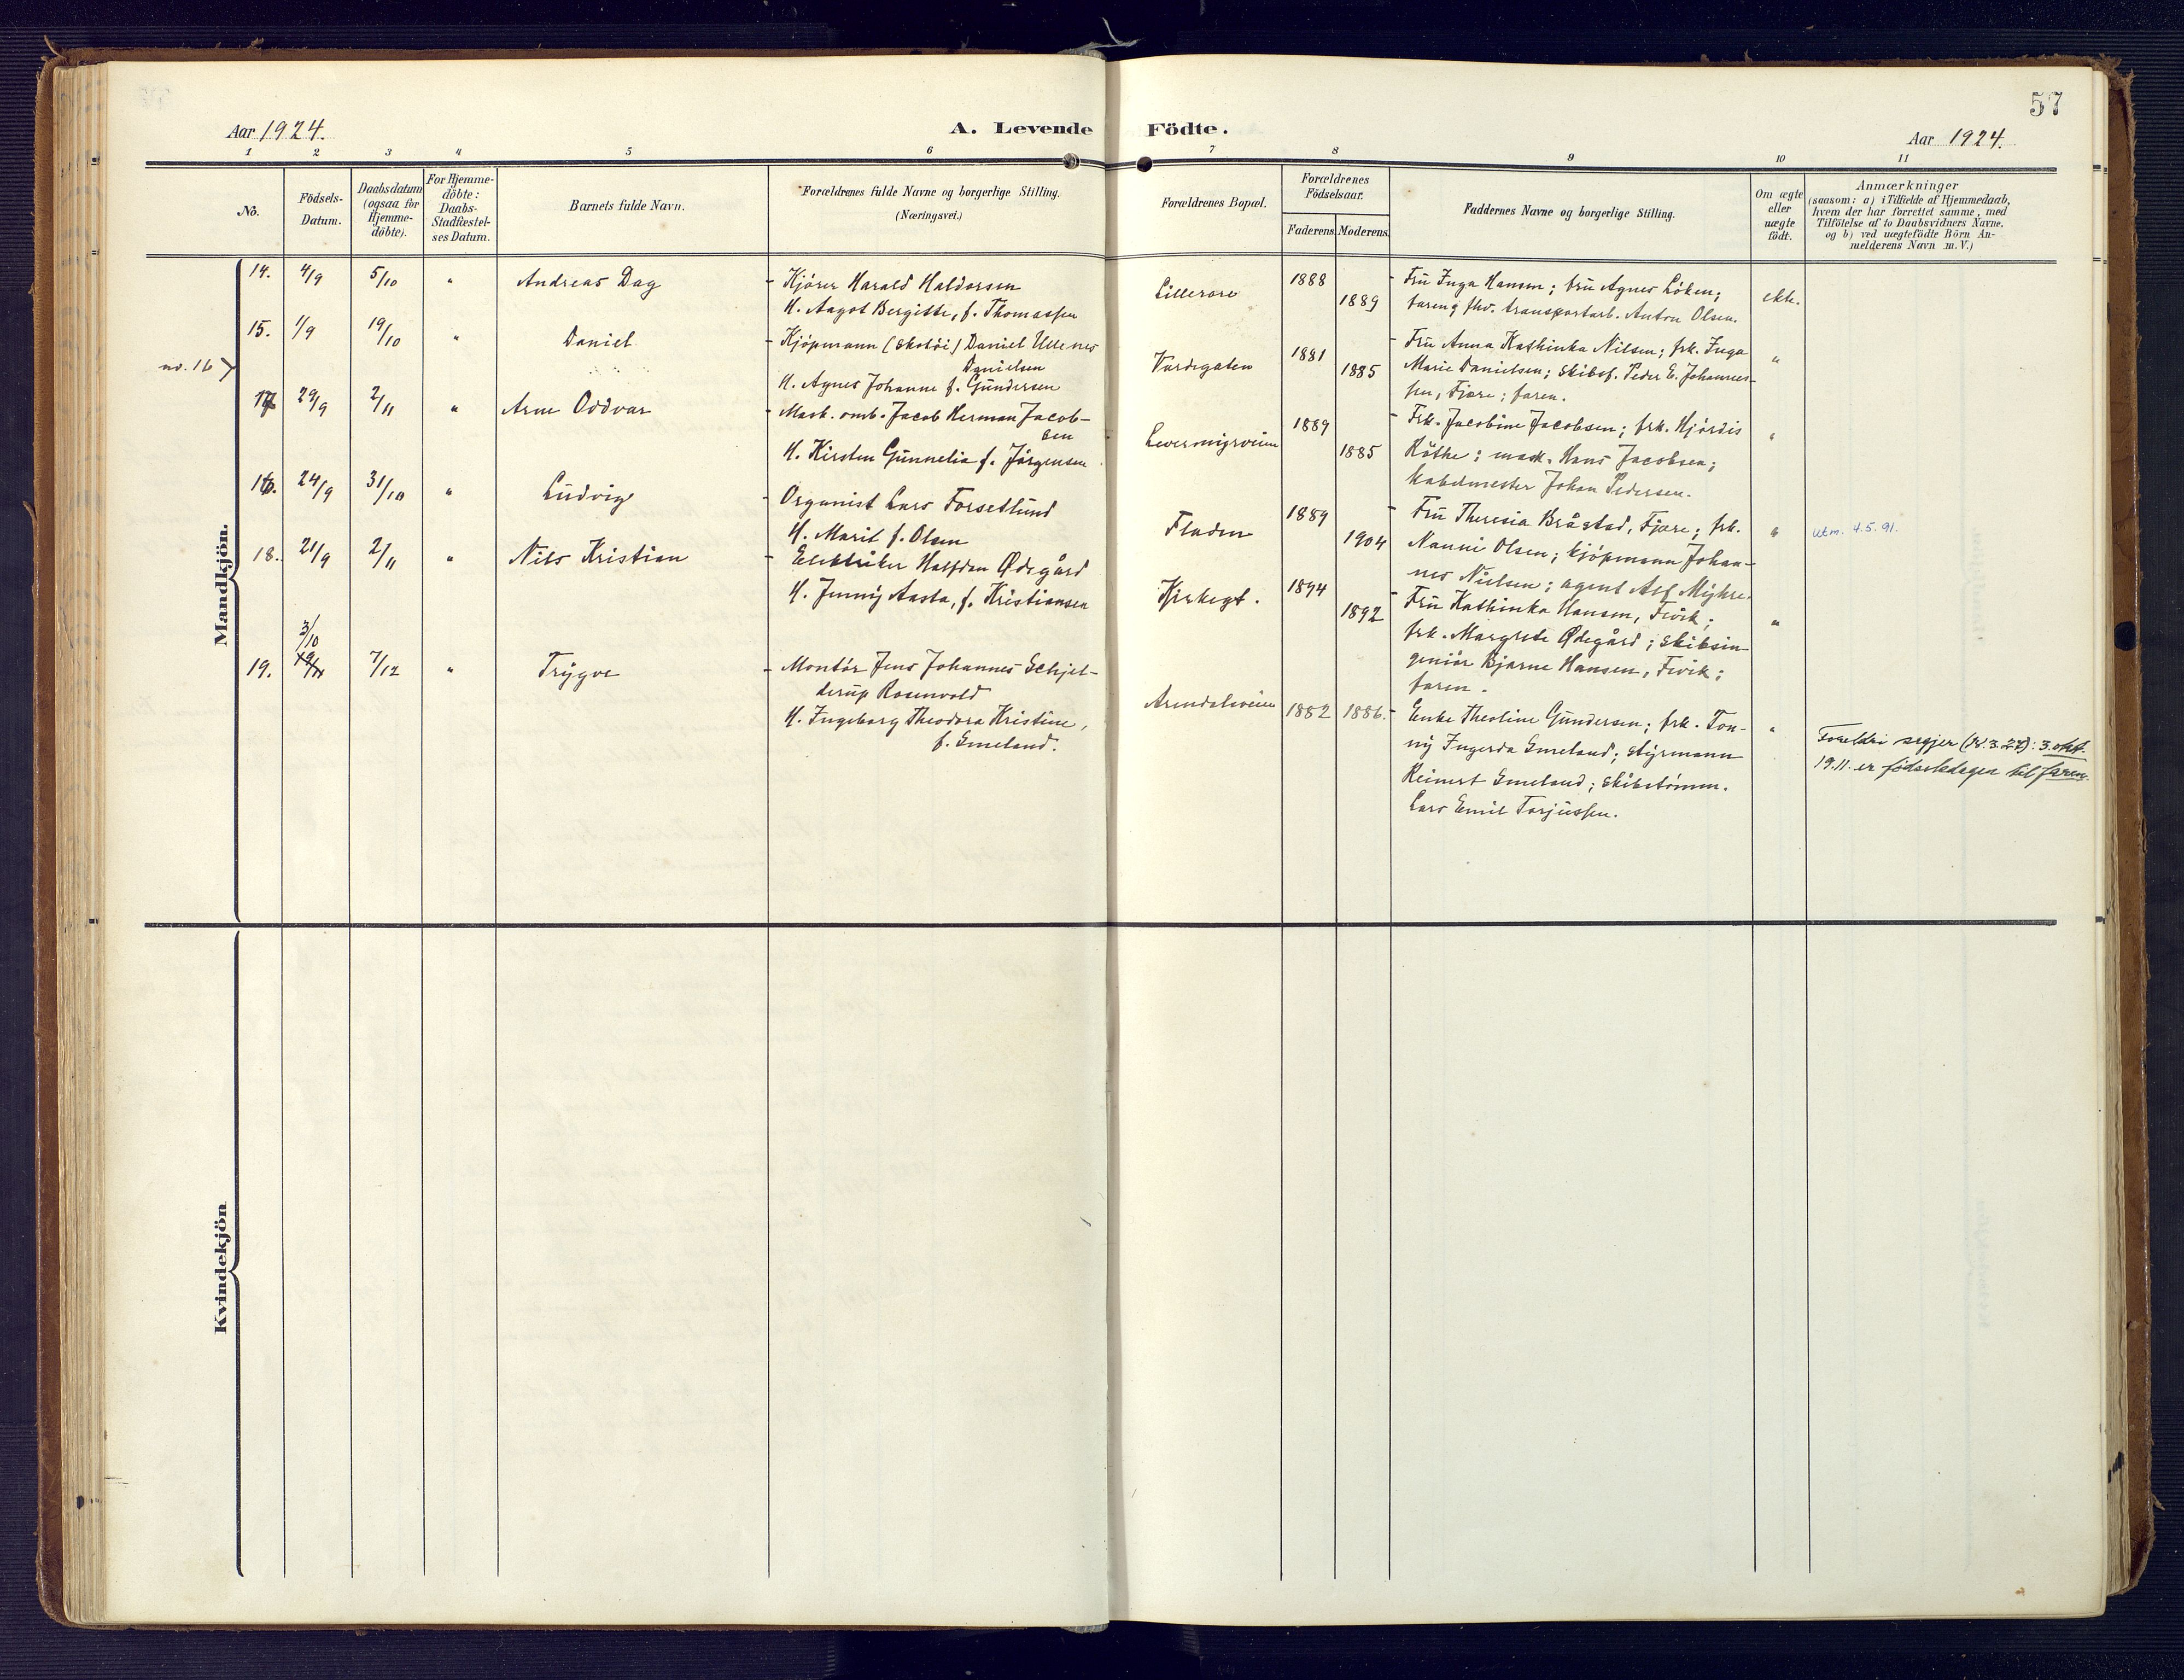 57
Aar 1924.
A. Levende Födte.
Aar 1924.
1 2 3 4 5 6 7 8 9 10 11
No.
Födsels-
Datum.
Daabsdatum
(ogsaa for
Hjemme-
döbte).
For Hjemme-
döbte:
Daabs-
Stadfæstel-
ses Datum.
Barnets fulde Navn.
Forældrenes fulde Navne og borgerlige Stilling.
(Næringsvei.)
Forældrenes Bopæl.
Forældrenes
Födselsaar.
Faderens.
Moderens.
Faddernes Navne og borgerlige Stilling.
Om ægte
eller
uægte
födt.
Anmærkninger
(saasom: a) i Tilfælde af Hjemmedaab,
hvem der har forrettet samme, med
Tilföielse af to Daabsvidners Navne,
og b) ved uægtefödte Börn An-
melderens Navn m. V.)
Mandkjön.
14. 4/9 5/10 " Andreas Dag
Kjører Harald Haldorsen
H. Aagot Bergitte, f. Thomassen
Lillerore
1888
1889
Frü Inga Hansen; frü Agnes Löken;
faren; fhv. transportarb. Anton Olsen.
ekte.
15. 1/9 19/10 " Daniel
Kjöpmann (skotöi) Daniel Ullenes
Danielsen
H. Agnes Johanne f. Gündersen
Vardegaten
1881
1885
Frü Anna Kathinka Nilsen; frk. Inga
Marie Danielsen; skibsf. Peder E. Johannes-
sen, Fjære; faren.
"
no. 16 >
17. 29/9 2/11 " Arne Oddvar
Mask. omb. Jacob Herman Jacob-
sen
H. Kirsten Günnelia f. Jörgensen
1889
1885
Frk. Jacobine Jacobsen; frk. Hjördis
Röthe; mask. Hans Jacobsen;
kabelmester Johan Pedersen.
"
16. 24/9 31/10 " Lüdvig
Organist Lars Forsetlünd
H. Marit f. Olsen
Fladen
1889
1904
Frü Theresia Bråstad, Fjære; frk.
Nanni Olsen; kjöpmann Johan-
nes Nielsen; agent Alf Myhre.
"
utm. 4.5.91.
18. 21/9 2/11 " Nils Kristian
Elektriker Halfdan Ødegård
H. Jenny Aasta, f. Kristiansen
Kirkegt.
1894
1892
Frü Kathinka Hansen, Fevik;
frk. Margrete Ødegård; skibsin-
geniör Bjarne Hansen, Fevik;
faren.
"
3/10
19. 19/11 7/12 " Trygve
Montör Jens Johannes Schjel-
derup Rosenvold
H. Ingeborg Theodora Kristine,
f. Smeland.
Arendalsveien
1882 1886.
Enke Theoline Gündersen; frk. Ton-
ny Ingerda Smeland; styrmann
Reinert Smeland; skibstömm.
Lars Emil Torjüssen.
"
Foreldri segjer (18.3.27): 3. okt.
19.11. er fødselsdagen til faren.
Kvindekjön